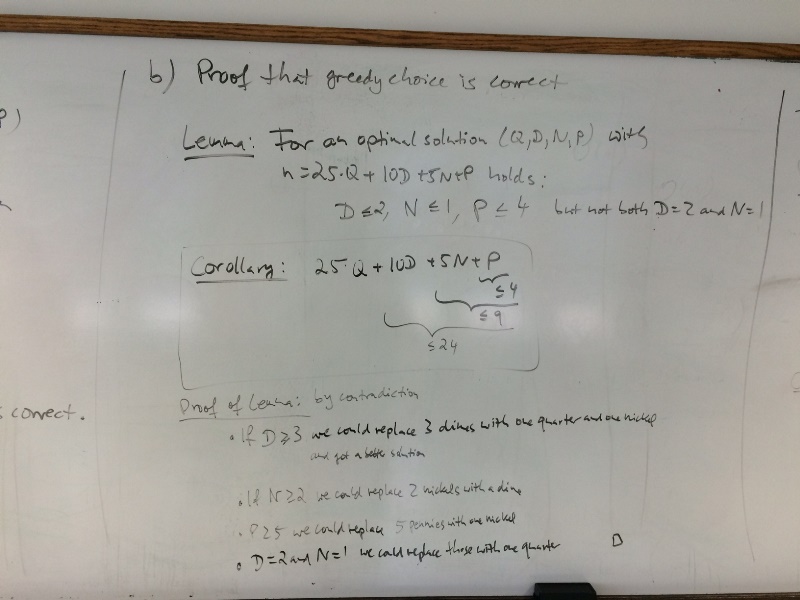 b) Proof that greedy choice is correct
Lemma: For an optimal solution (Q,D,N,P) with
n=25·Q+10D+5N+P holds:
D≤2, N≤1, P≤4 but not both D=2 and N=1
Corollary: 25·Q+10D+5N+P
≤4
≤9
≤24
P)
s correct.
Proof of Lemma: by contradiction
• If D≥3 we could replace 3 dimes with one quarter and one nickel
and get a better solution
• If N≥2 we could replace 2 nickels with a dime
• P≥5 we could replace 5 pennies with one nickel
• D=2 and N=1 we could replace those with one quarter □